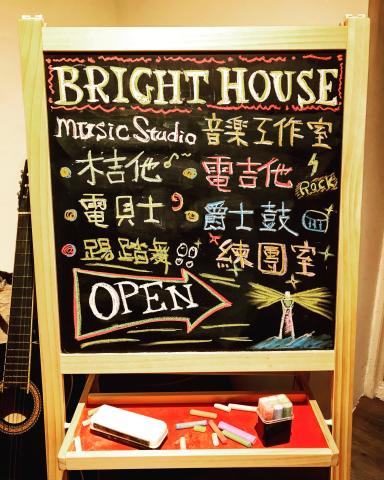 BRIGHT HOUSE
Music Studio 音樂工作室
木吉他 電吉他 Rock
電貝士 爵士鼓
踢踏舞 練團室
OPEN